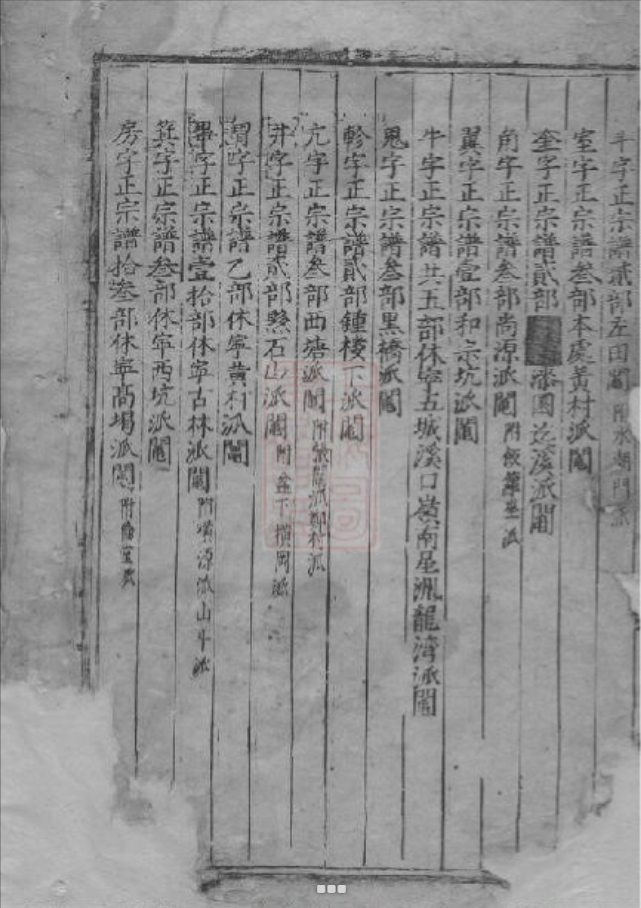 斗字正宗譜貳部左田閣附水朝門派
室字正宗譜叁部本處黃村派閣
奎字正宗譜貳部潛國迄溪派閣
角字正宗譜叁部尚源派閣附
翼字正宗譜壹部和尖坑派閣
牛字正宗譜共五部休寧五城溪口嶺南星洲龍灣派閣
鬼字正宗譜叁部黑橋派閣
軫字正宗譜貳部鍾楼下派閣
亢字正宗譜叁部西塘派閣附派鄭村派
井字正宗譜貳部縣石山派閣附下橫岡派
胃字正宗譜乙部休寧黃村派閣
畢字正宗譜壹拾部休寧古林派閣附橫源派山斗派
箕字正宗譜叁部休寧西坑派閣
房字正宗譜拾叁部休寧高堨派閣附